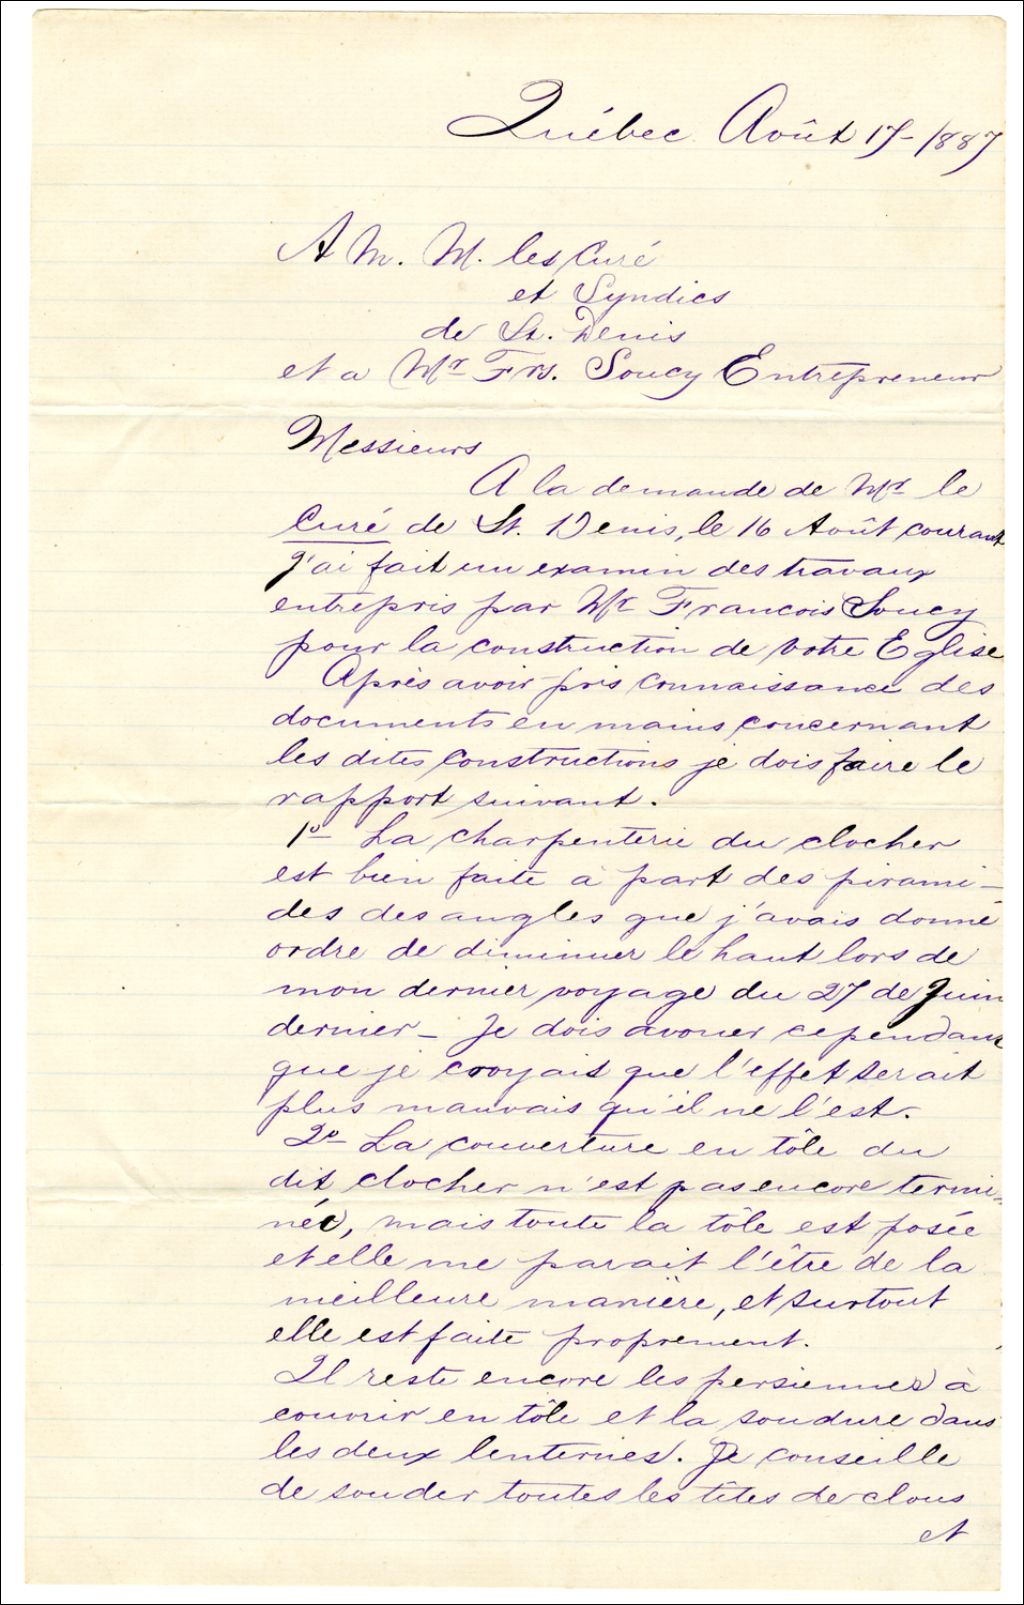 Québec Août 17- 1887
A M. M. les Curé
et Syndics
de St. Denis
et a Mr Frs. Soucy Entrepreneur
Messieurs
A la demande de Mr le
Curé de St. Denis, le 16 Août courant
j'ai fait un examin des travaux
entrepris par Mr Francois Soucy
pour la construction de votre Eglise
Après avoir pris connaissance des
documents en mains concernant
les dites constructions je dois faire le
rapport suivant.
1o- La charpenterie du clocher
est bien faite à part des pirami-
des des angles que j'avais donné
ordre de diminuer le haut lors de
mon dernier voyage du 27 de Juin
dernier - Je dois avouer cependant
que je croyais que l'effet serait
plus mauvais qu'il ne l'est.
2o- La couverture en tôle du
dit clocher n'est pas encore termi-
née, mais toute la tôle est posée
et elle me parait l'être de la
meilleure manière, et surtout
elle est faite proprement.
Il reste encore les persiennes à
couvrir en tôle et la soudure dans
les deux lenternes. Je conseille
de souder toutes les têtes de clous
et